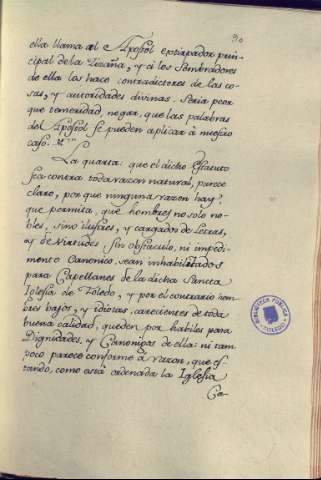 90
ella llama al Apostol extirpador prin-
cipal de la Zizaña, y a los sembradores
de ella los hace contradictores de las co-
sas, y autoridades divinas. Seria peor
que temeridad, negar, que las palabras
del Apostol se pueden aplicar â nuestro
caso.
La quarta: que el dicho Estatuto
sea contra toda razon natural, parece
claro, por que ninguna razon hay,
que permita, que hombres no solo no-
bles, sino ilustres, y cargados de Letras,
y de virtudes sin obstaculo, ni impedi-
mento Canonico, sean inhabilitados
para Capellanes de la dicha Sancta
Iglesia de Toledo, y por el contrario hom-
bres bajos, y idiotas, carecientes de toda
buena calidad, queden por habiles para
Dignidades, y Canonigos de ella: ni tam
poco parece conforme â razon, que es-
tando, como está ordenada la Iglesia
Ca-
BIBLIOTECA PUBLICA
TOLEDO